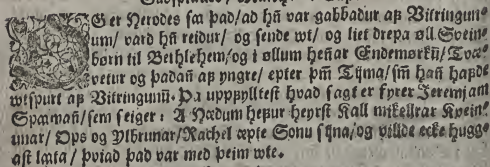 EG er Herodes saa þad/ad hn̄ var gabbadur aß Vitringun⸗
um/ vard hn̄ reidur/ og sende wt/ og liet drepa øll Svein⸗
børn til Bethlehem/ og i øllum hen̄ar Endemørkū/ Tvæ⸗
vetur og þadan̄ aß yngre/ epter þm̄ Tijma/ sm̄ han̄ haßde
wtspurt aß Vitringunū. Þa uppßylltest hvad sagt er fyrer Jeremjam
Spæman̄/ sem seiger: A Hædum heßur heyrst Kall mikellrar Kvein⸗
unar/ Ops og Ylbrunar/ Rachel æpte Sonu sijna/ og villde ecke hugg⸗
ast læta/ þviad þad var med þeim wte.